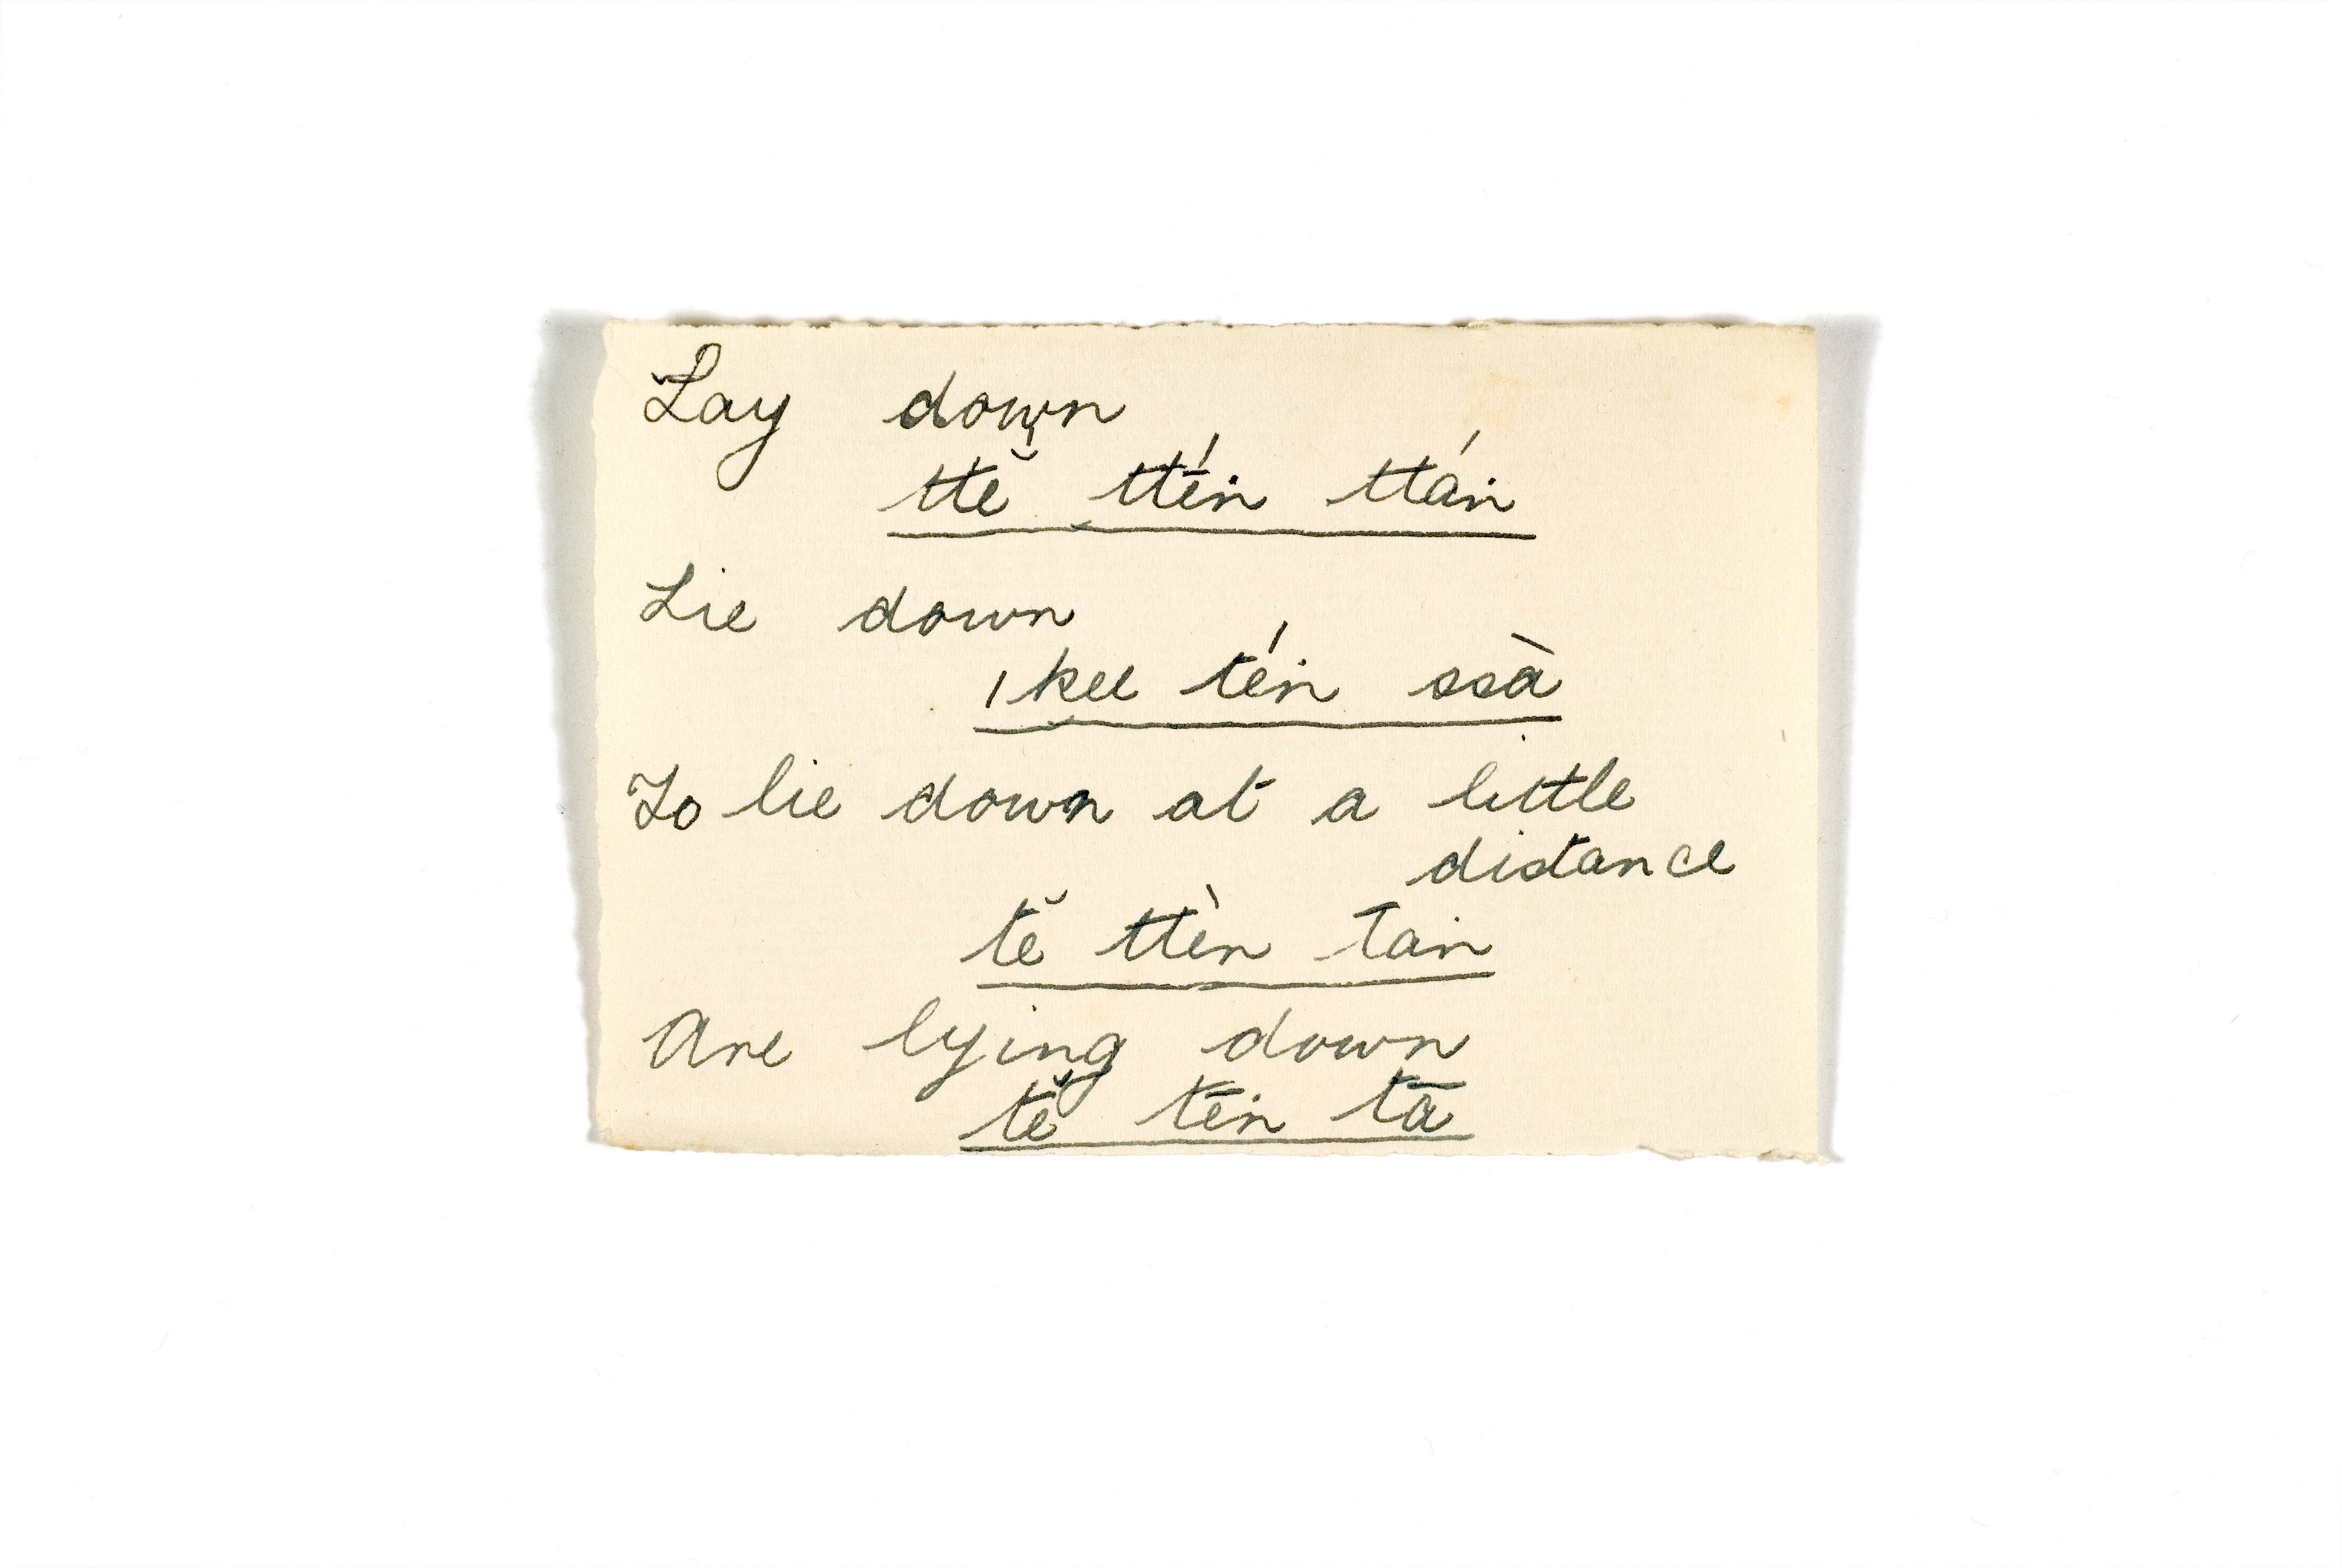 Lay down
ttĕ ttén ttán
Lie down
ı kee tén ssà
To lie down at a little
distance
tĕ ttèn tan
Are lying down
tĕ tēn tā